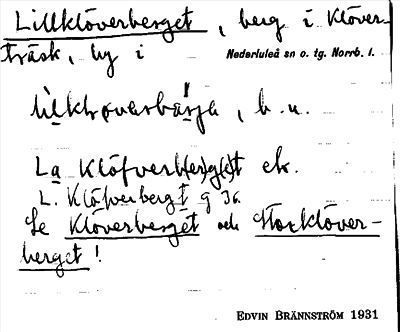 Lillklöverberget, berg i Klöver-
träsk, by i Nederluleå sn o. tg. Norrb. l.
b. u.
La Klöfverb(er)g(e)t ek.
L. Klöfverberget g 36
Se Klöverberget och Storklöver-
berget!
EDVIN BRÄNNSTRÖM 1931